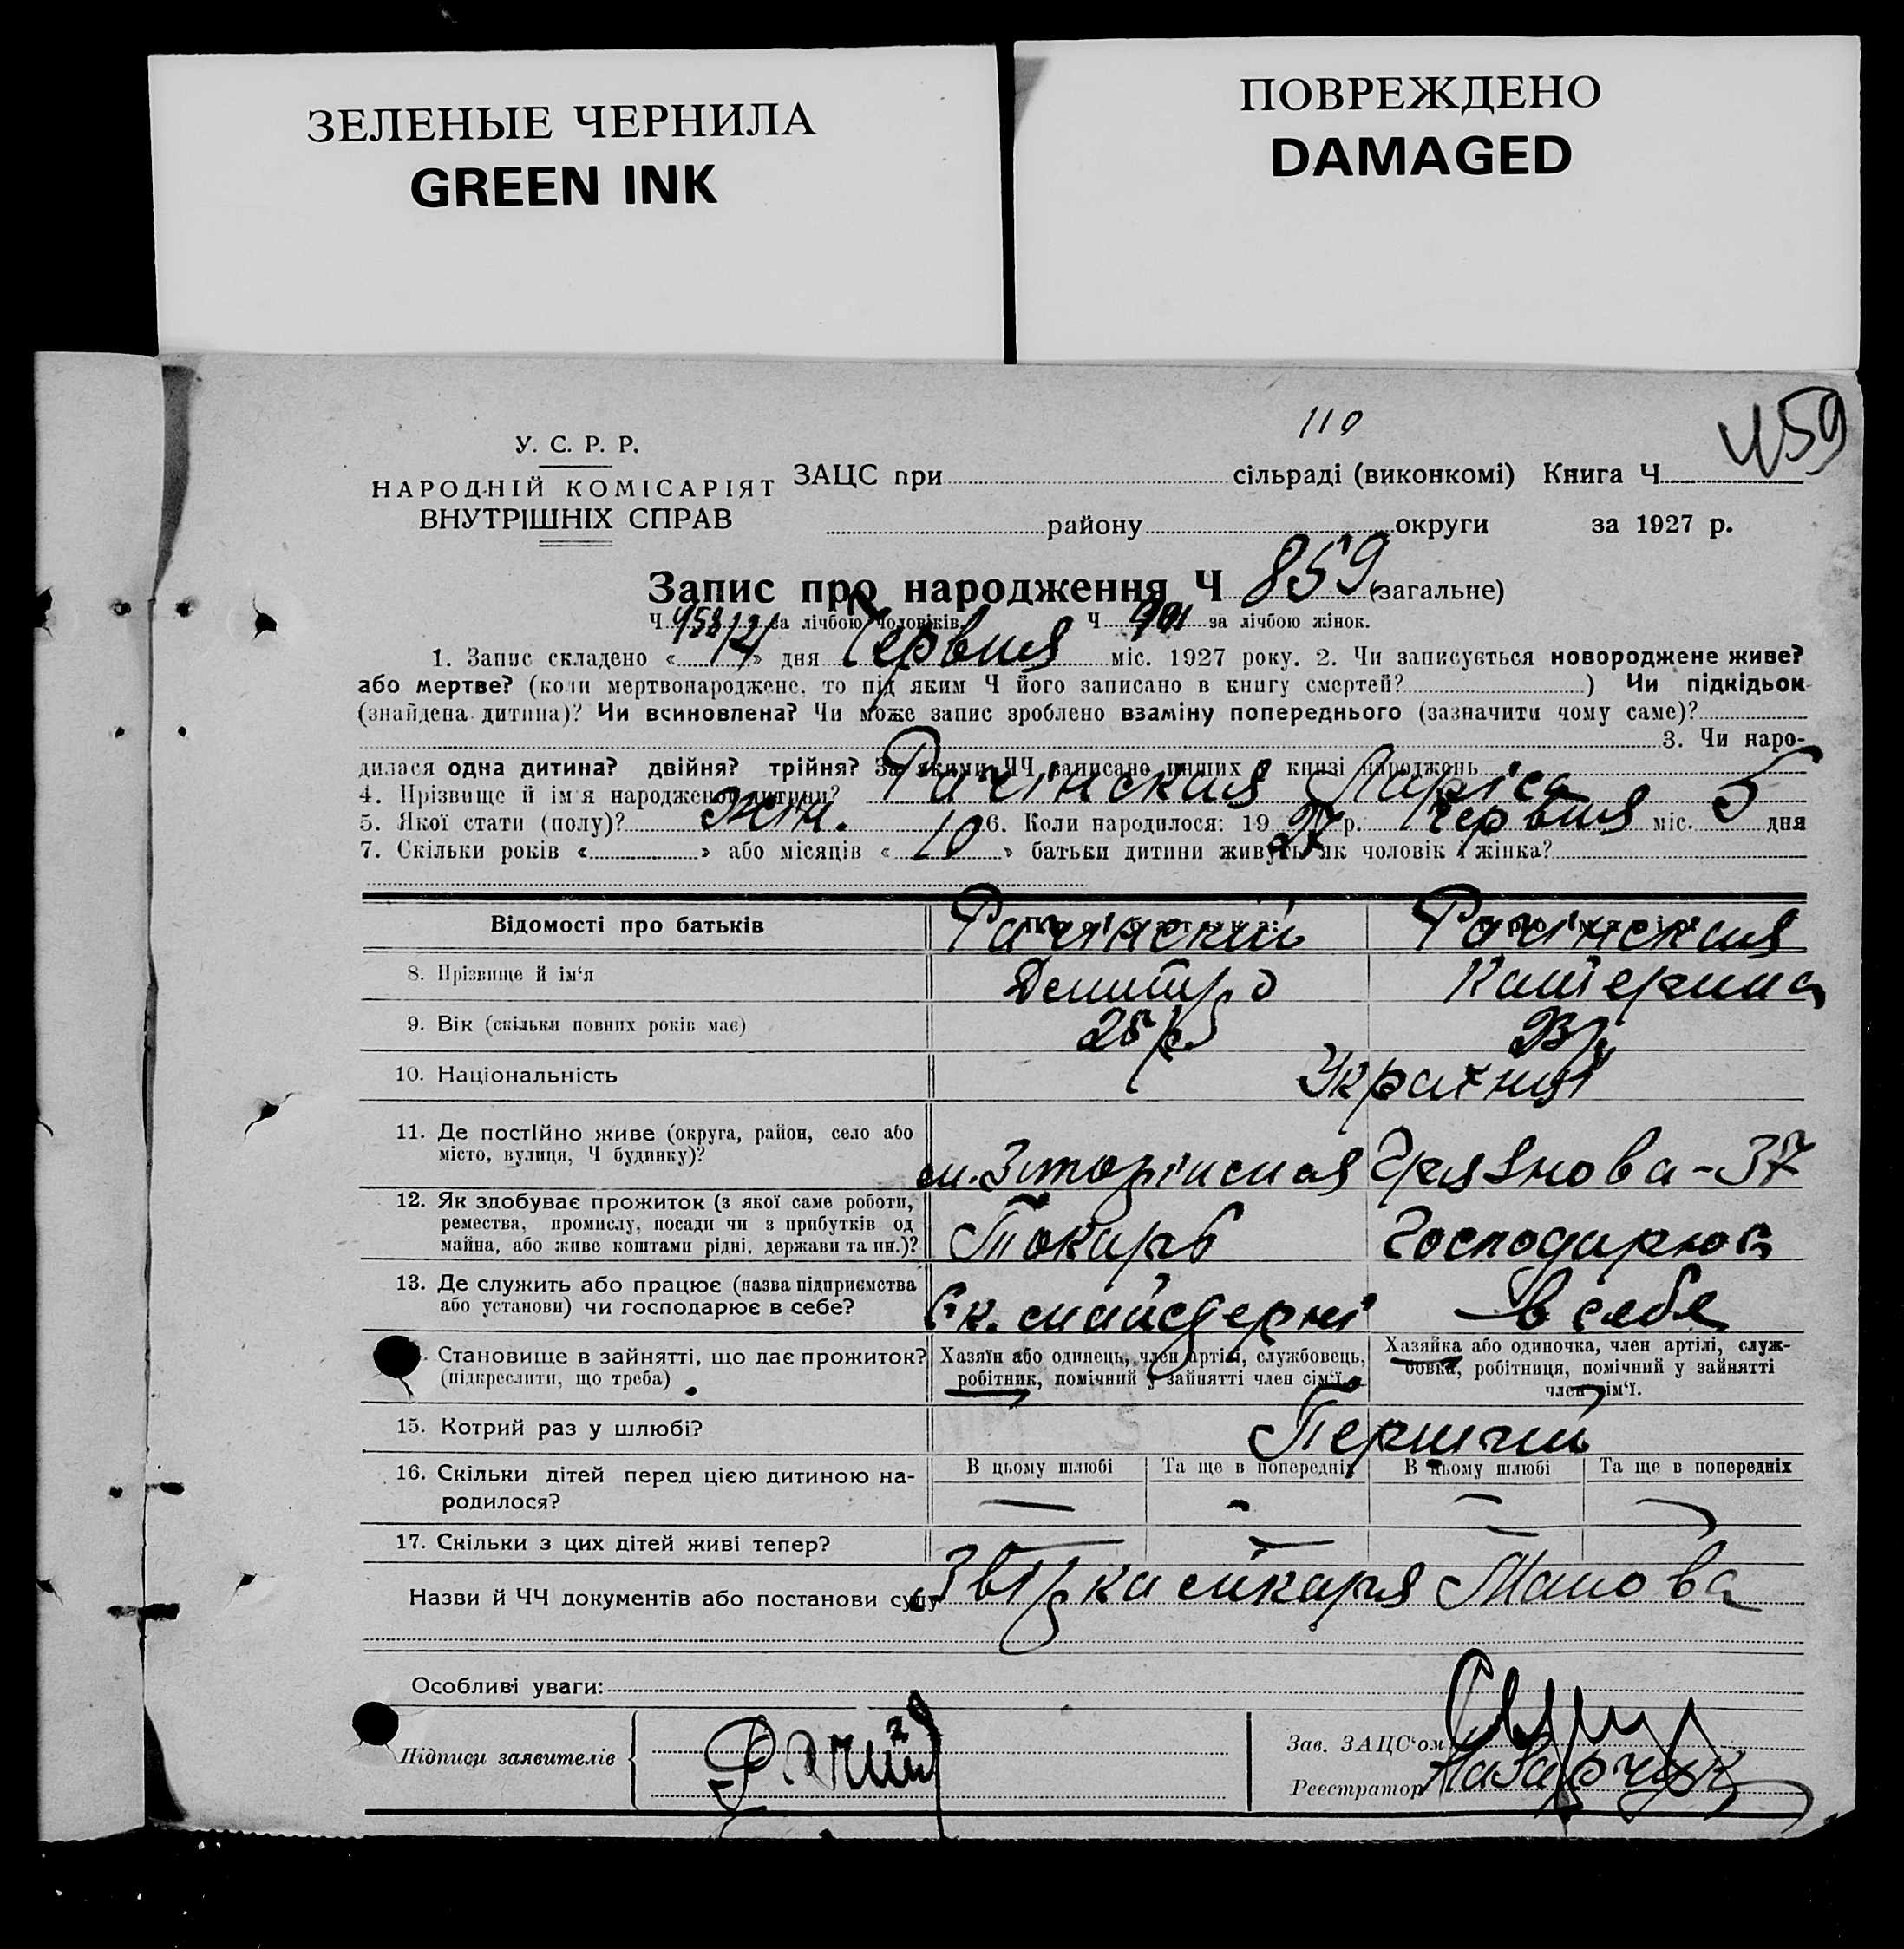 ЗЕЛЕНЫЕ ЧЕРНИЛА
GREEN INK
ПОВРЕЖДЕНО
DAMAGED
110
459
У. С. Р. Р.
НАРОДНІЙ КОМІСАРІЯТ
ВНУТРІШНІХ СПРАВ
ЗАЦС при сільраді (виконкомі) Книга Ч
району округи за 1927 р.
Запис про народження Ч 859 (загальне)
Ч 458 за лічбою чоловіків. Ч 401 за лічбою жінок.
1. Запис складено « » дня Червня міс. 1927 року. 2. Чи записується новороджене живе?
або мертве? (коли мертвонароджене, то під яким Ч його записано в книгу смертей? ) Чи підкідьок
(знайдена дитина)? Чи всиновлена? Чи може запис зроблено взаміну попереднього (зазначити чому саме)?
3. Чи наро-
дилася одна дитина? двійня? трійня? За якими ЧЧ записано инших в книзі народжень
4. Прізвище й ім'я народженої дитини? Рачінская Ларіса
5. Якої стати (полу)? Жін. 6. Коли народилося: 1927 р. Червня міс. 5 дня
7. Скільки років « » або місяців « 10 » батьки дитини живуть як чоловік і жінка?
Відомості про батьків
Рачінский Рачінская
8. Прізвище й ім'я Дмитро Катерина
9. Вік (скільки повних років має) 25 р. 23 р.
10. Національність Українці
11. Де постійно живе (округа, район, село або
місто, вулиця, Ч будинку)?
Грязнова - 37
12. Як здобуває прожиток (з якої саме роботи,
ремества, промислу, посади чи з прибутків од
майна, або живе коштами рідні, держави та ин.)?
Токарь Господарює
13. Де служить або працює (назва підприємства
або установи) чи господарює в себе?
майстерні в себе
Становище в зайнятті, що дає прожиток?
(підкреслити, що треба)
Хазяїн або одинець, член артілі, службовець,
робітник, помічний у зайнятті член сім'ї.
Хазяйка або одиночка, член артілі, служ-
бовка, робітниця, помічний у зайнятті
член сім'ї.
15. Котрий раз у шлюбі? Перший
16. Скільки дітей перед цією дитиною на-
родилося?
В цьому шлюбі Та ще в попередніх В цьому шлюбі Та ще в попередніх
17. Скільки з цих дітей живі тепер?
Назви й ЧЧ документів або постанови суду
лікаря
Особливі уваги:
Підписи заявителів
Зав. ЗАЦС'ом
Реєстратор Назарчук